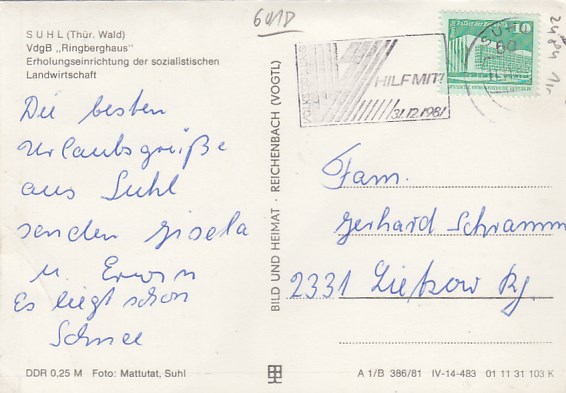 601D
SUHL (Thür. Wald)
VdgB „Ringberghaus"
Erholungseinrichtung der sozialistischen
Landwirtschaft
Die besten
Urlaubsgrüße
aus Suhl
senden Gisela
u. Erwin
Es liegt schon
Schnee
DDR 0,25 M Foto: Mattutat, Suhl
BILD UND HEIMAT · REICHENBACH (VOGTL)
HILF MIT!
31.12.1981
10
SUHL
60
Fam.
Gerhard Schramm
2331 Lietzow Rg.
A 1/B 386/81 IV-14-483 01 11 31 103 K